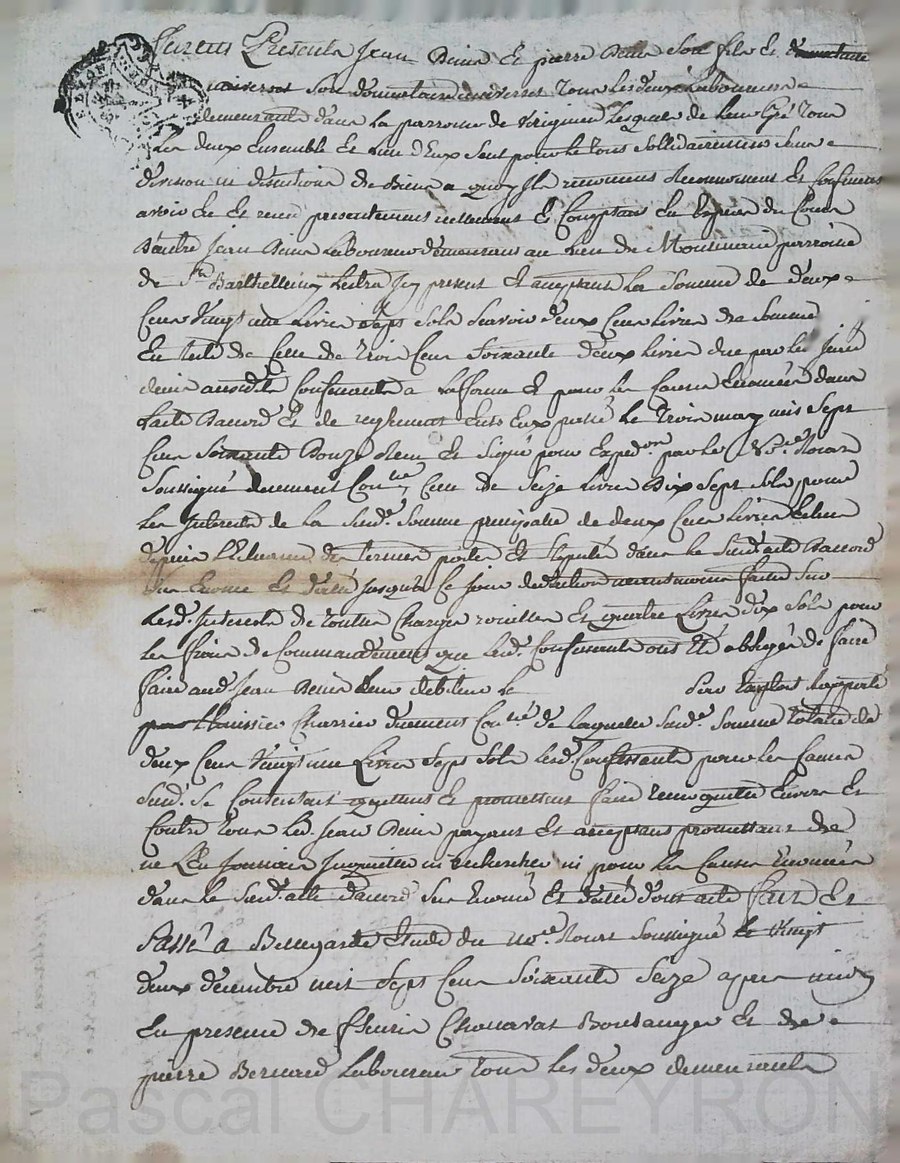 Furent Presents Jean Brun Et pierre Brun Son fils Et
Son donnataire universel Tous Les deux Laboureurs
demeurants dans La parroisse de Virigneu Lesquels de Leur Gré Tous
Les deux Ensemble Et L'un d'Eux Seul pour Le tous Sollidairement Sans
division ni discution de biens a quoy Ils renoncent reconnoissent Et Confessent
avoir Eu Et receu presentement reellement Et Comptant En Espece du Cours
D'autre Jean Laboureur demeurant au Lieu de parroisse
de St Barthellemy Lestra Icy present Et acceptant La Somme de deux
Cens Vingt une Livre Sept Sols Scavoir deux Cens Livres de Somme
En reste de Celle de Trois Cens Soixante deux Livres due par Led. Jean
audits Confessants a La forme Et pour Les Causes Enoncées dans
L'acte D'accord Et de reglement Entr'Eux passé Le Trois may mil Sept
Cens Soixante Douze receu Et Signé pour Exped.on par Le Nre Royal
Soussigné duement Conllé, Celle de Seize Livres Dix Sept Sols pour
Les Interests de La Susd. Somme principale de deux Cens Livres
depuis L'Echeance des termes portés Et Stipulés dans Le Susd. acte D'accord
Sus Enoncé Et datté Jusqu'à Ce Jour deduction faite Sur
Lesd. Interests de Toutes Charges royalles Et quatre Livres dix Sols pour
Les fraix de Commandement que Lesd. Confessants ont Eté obligés de faire
faire aud. Jean Leur debiteur Le par Exploit rapporté
L'huissier Charrier duement Conllé de Laquelle Susd. Somme Totalle de
deux Cens Vingt une Livre Sept Sols Lesd. Confessants pour Les Causes
Susd. Se Contentent quittent Et promettent faire Tenir quitte Envers Et
Contre Tous Led. Jean payant Et acceptant promettant de
ne L'En Jamais Inquieter ni rechercher ni pour Les Causes Enoncées
dans Le Susd. acte d'accord Sus Enoncé Et datté dont acte Fait Et
Passé a Bellegarde Etude du No.re Royal Soussigné Le Vingt
deux decembre mil Sept Cens Soixante Seize apres midy
En presence de fleurie Boulanger Et de
pierre Bernard Laboureur Tous Les deux demeurants
Pascal CHAREYRON